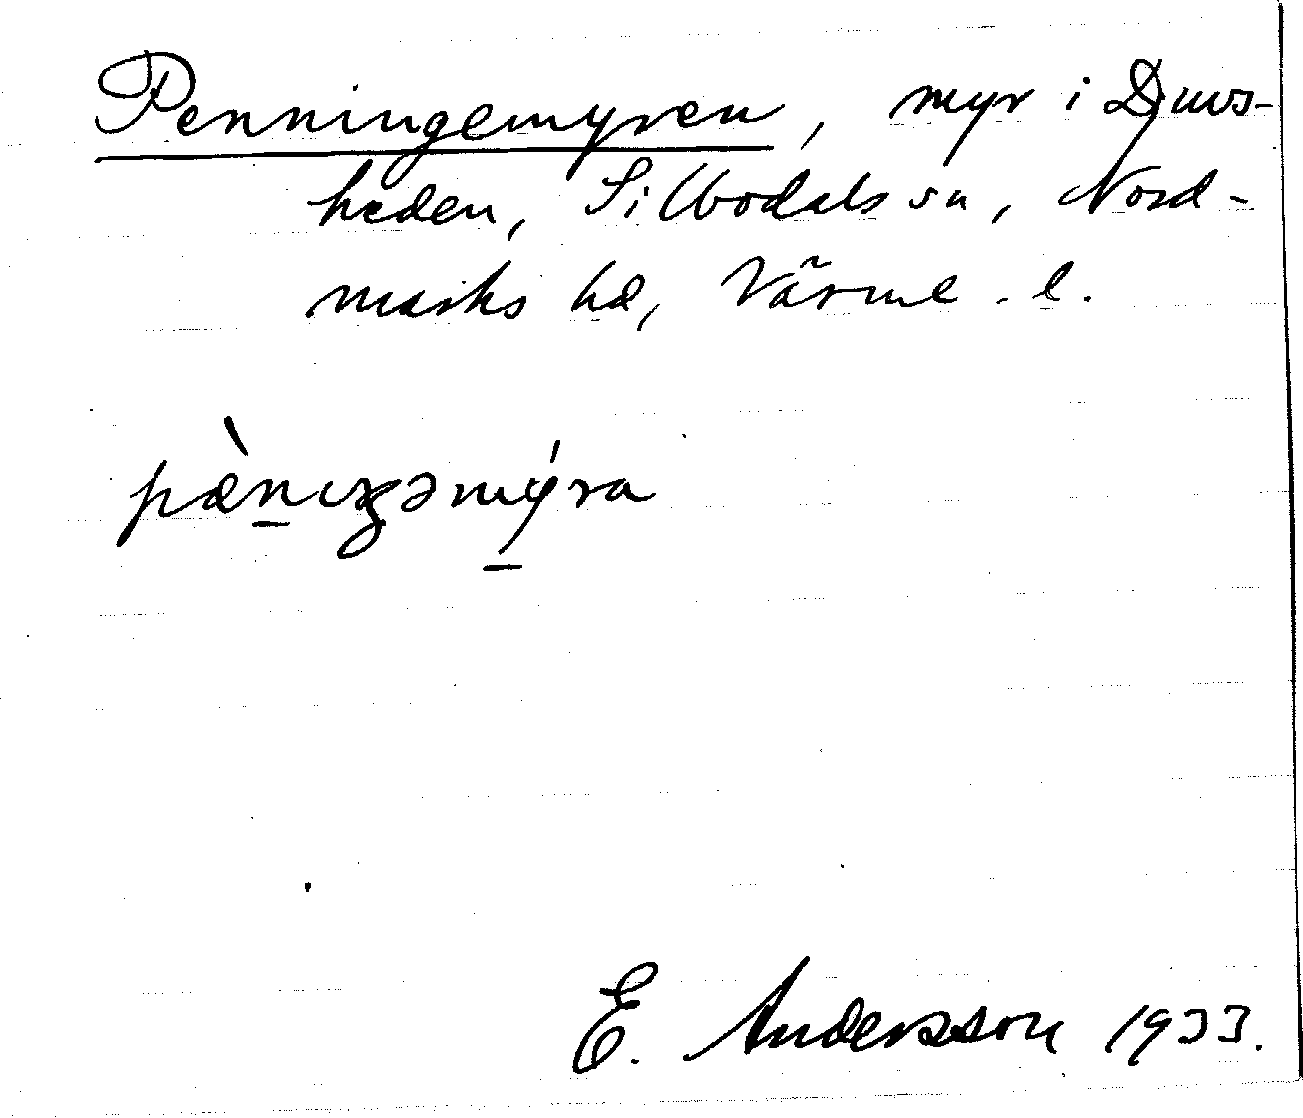 Penningemyren, myr i Djuvs-
heden, Silbodals sn, Nord-
marks hd, Värml. l.
pæ̀nıgəmýra
E. Andersson 1933.